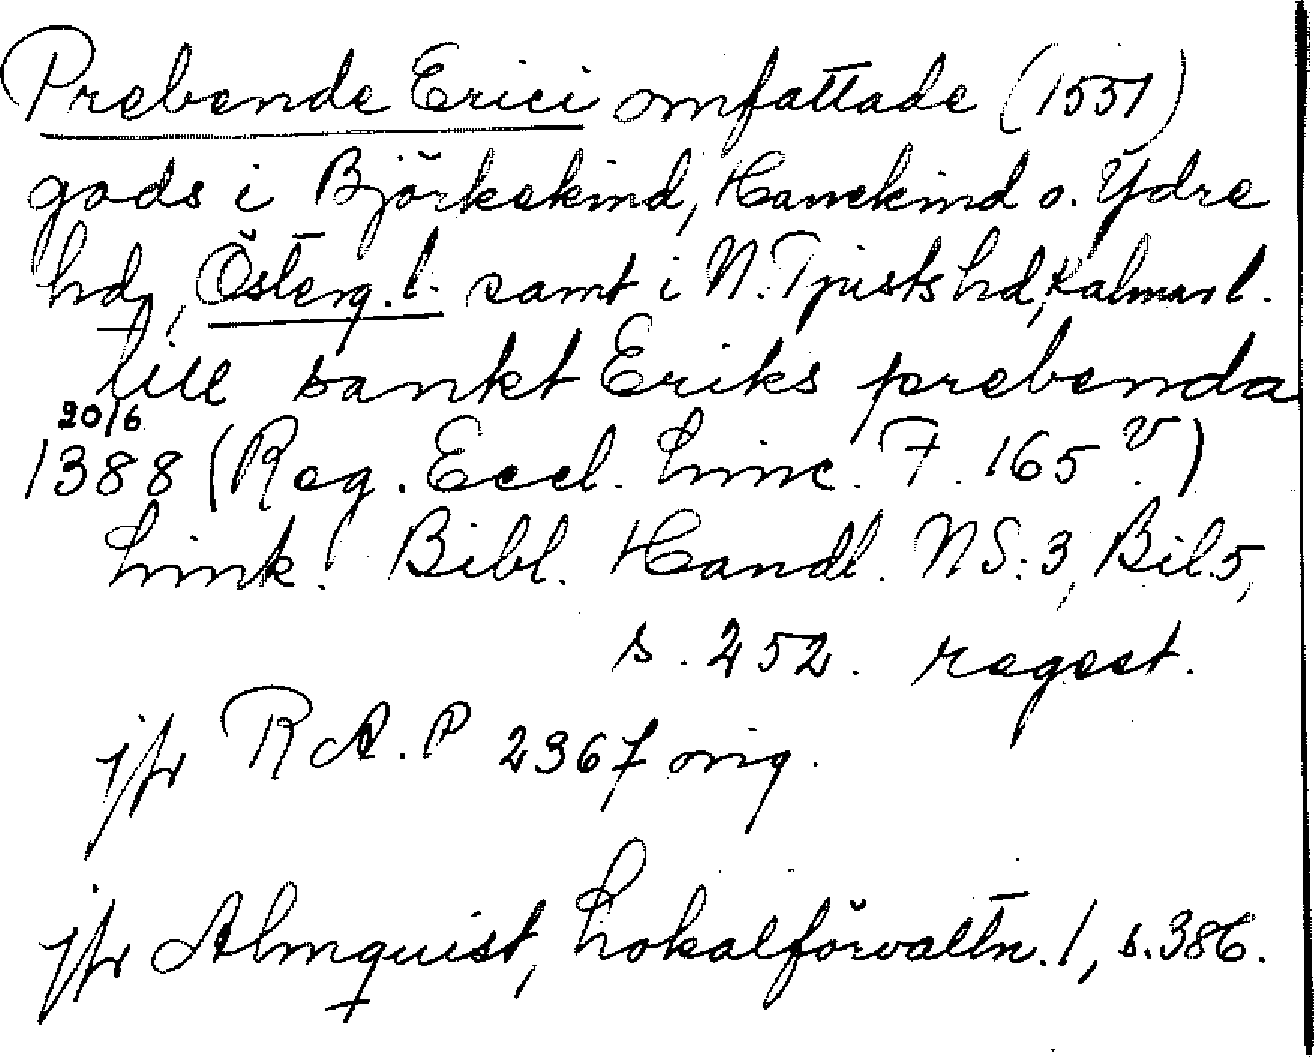 Prebende Erici omfattade (1551)
gods i Björkekind, Hanekind o. Ydre
hdr, Österg. l. samt i N. Tjusts hd, Kalmar l.
till sankt Eriks prebenda
20/6
1388 (Reg. Eccl. Linc. F. 165 v.)
Link. Bibl. Handl. NS: 3, Bil. 5,
s. 252. regest.
jfr RA. P 2367 orig.
jfr Almquist, Lokalförvaltn. 1, s. 386.